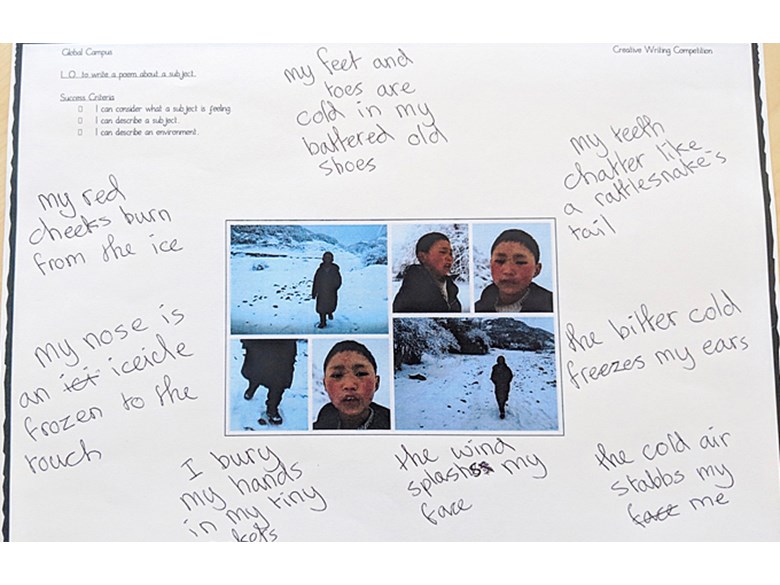 Global Campus
Creative Writing Competition
L.O. to write a poem about a subject.
Success Criteria
I can consider what a subject is feeling.
I can describe a subject.
I can describe an environment.
my feet and
toes are
cold in my
battered old
shoes
my teeth
chatter like
a rattlesnake's
tail
my red
cheeks burn
from the ice
the bitter cold
freezes my ears
my nose is
an icicle
frozen to the
touch
I bury
my hands
in my tiny
the wind
splashs my
face
the cold air
stabbs my
face me